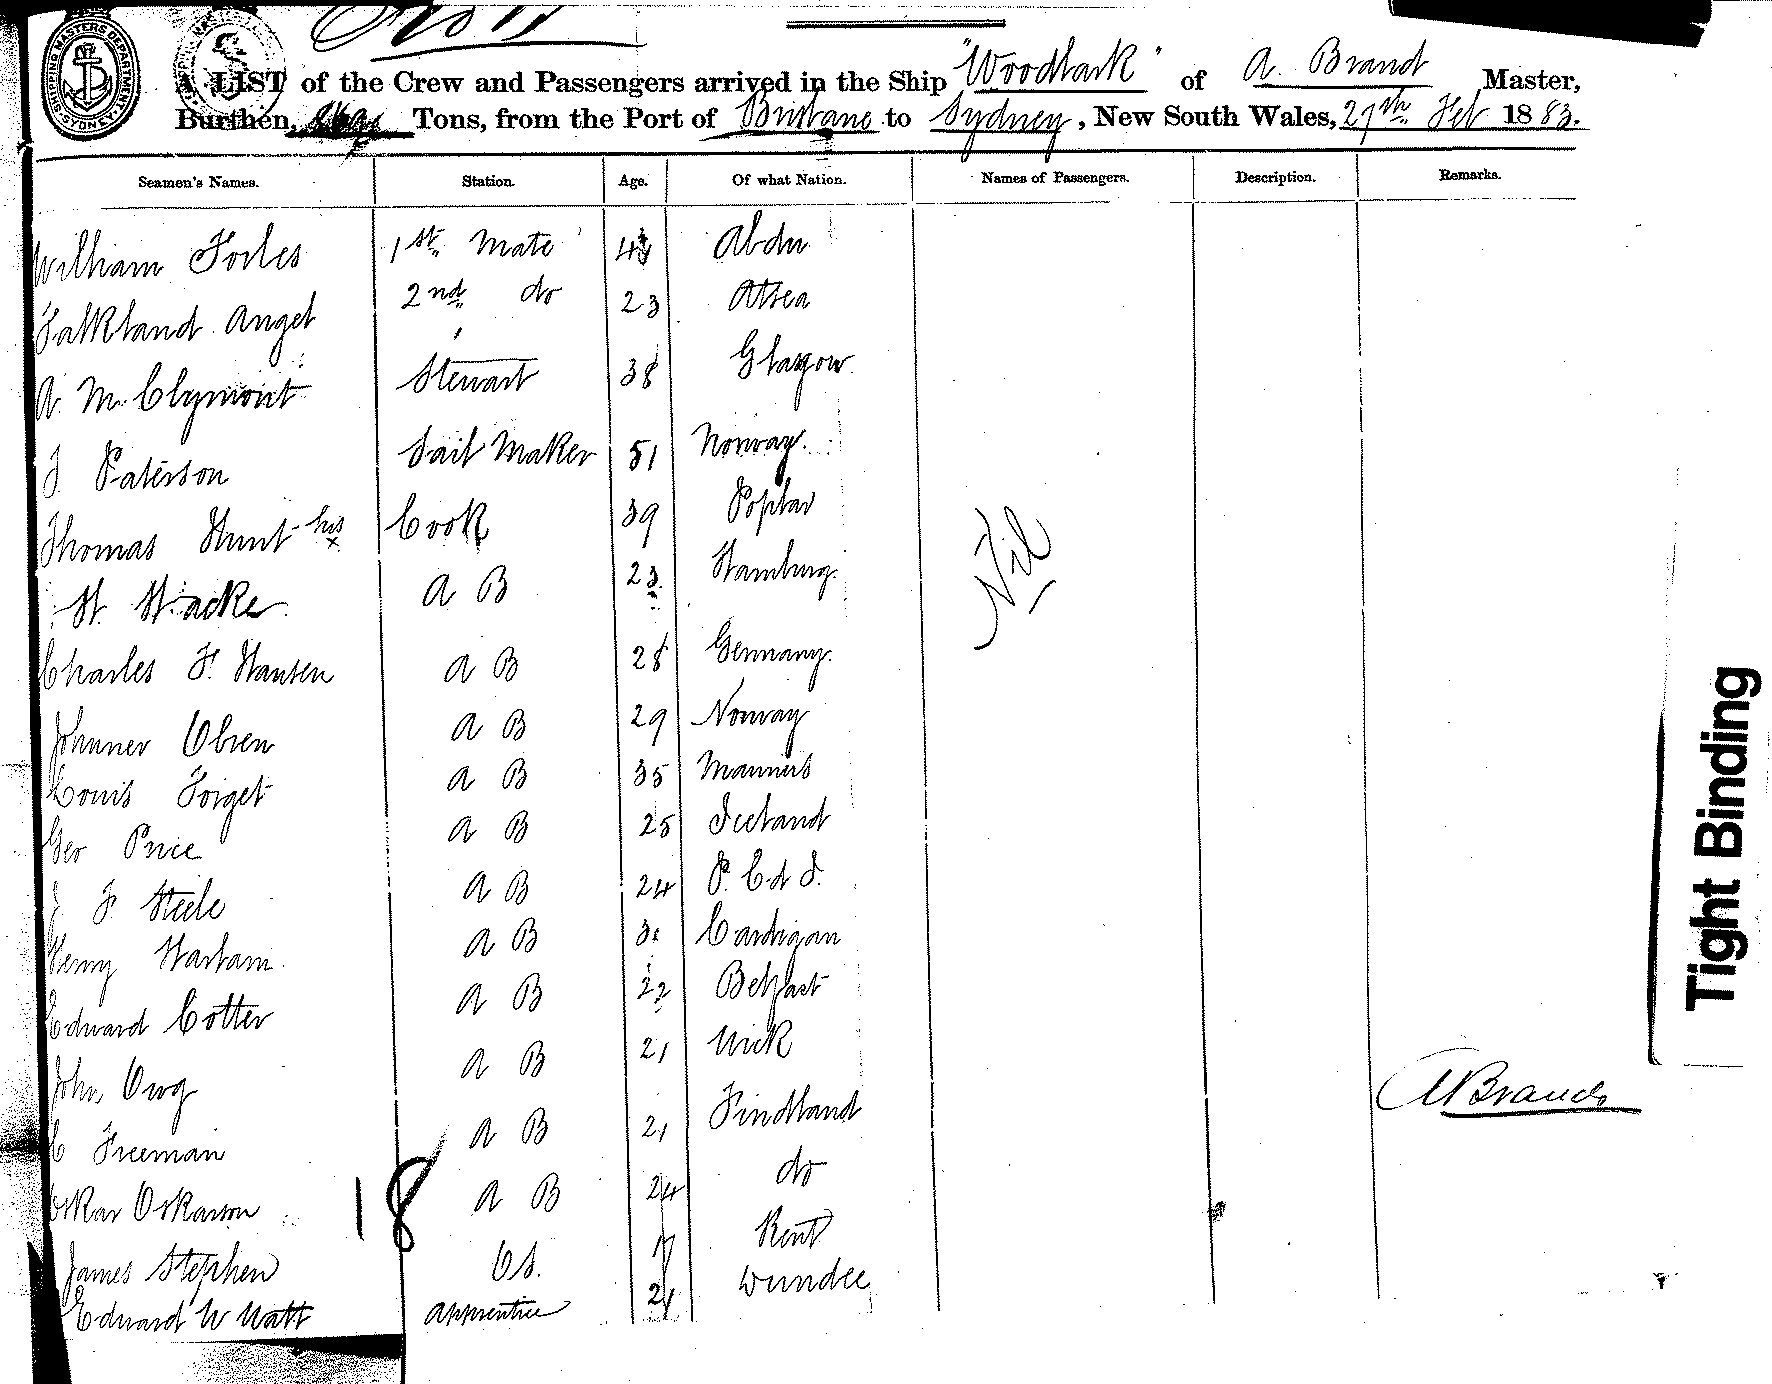 No 11
SHIPPING MASTERS DEPARTMENT SYDNEY
A LIST of the Crew and Passengers arrived in the Ship "Woodlark" of A. Brand Master,
Burthen, Tons, from the Port of Brisbane to Sydney, New South Wales, 27th Feb 1883.
Seamen's Names. Station. Age. Of what Nation. Names of Passengers. Description. Remarks.
William Forbes 1st Mate Abdn
Falkland Angel 2nd do 23 Atsea
A. McClymont Stewart 38 Glasgow
J. Paterson Sail Maker 51 Norway.
Thomas Hunt his x Cook 39 Poplar
H. Hacke A B 23 Hamburg.
Nil
Charles F. Hansen A B 28 Germany.
Olsen A B 29 Norway
Louis Forget A B 35
Geo Price A B 25 Iceland
J F. Steele A B 24
Henry A B Cardigan
Edward Cotter A B 22 Belfast
John A B 21 Wick
C Freeman A B 21 Findland
Oskar Oskarson A B 24 do
James Stephen O.S. 17 Kent
Edward W Watt Apprentice 21 Dundee
18
A Brand
Tight Binding